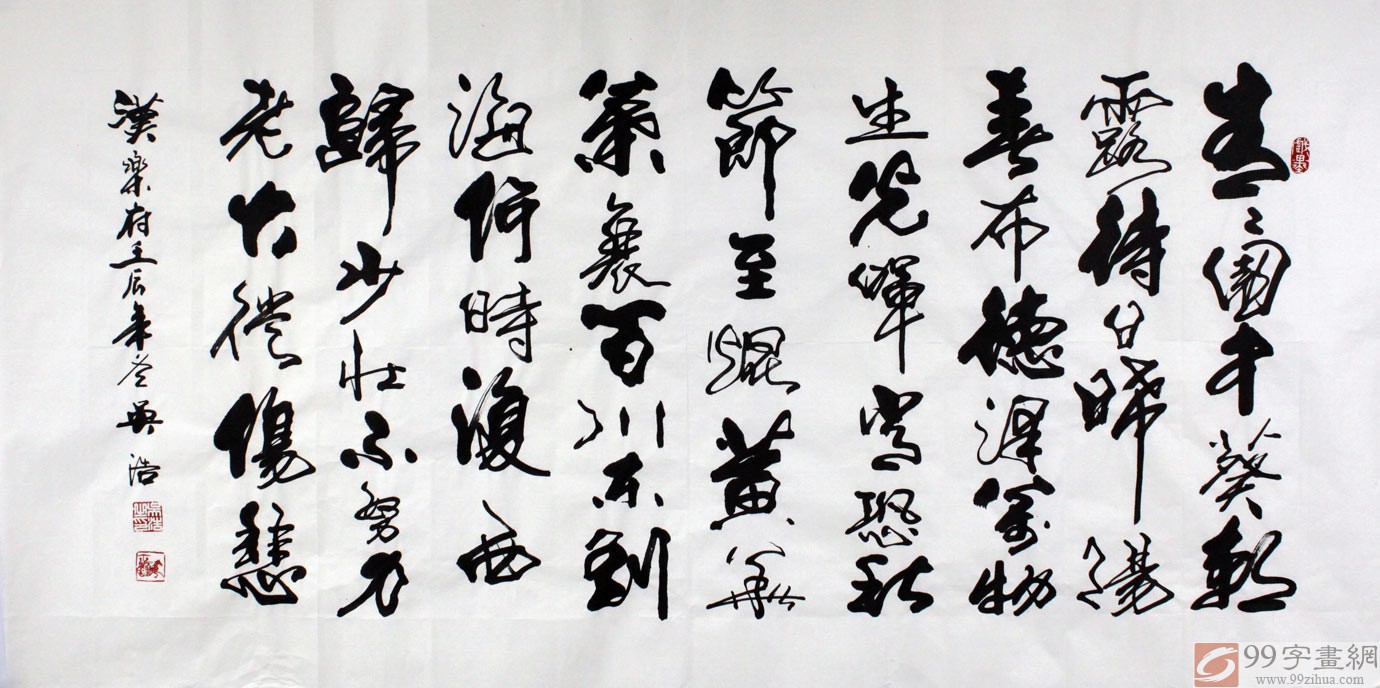 青〻園中葵朝
露待日晞陽
春布德澤萬物
生光輝常恐秋
節至焜黃華
葉衰百川東到
海何時復西
歸少壯不努力
老大徒傷悲
漢樂府壬辰年吳浩
99字畫網
www.99zihua.com